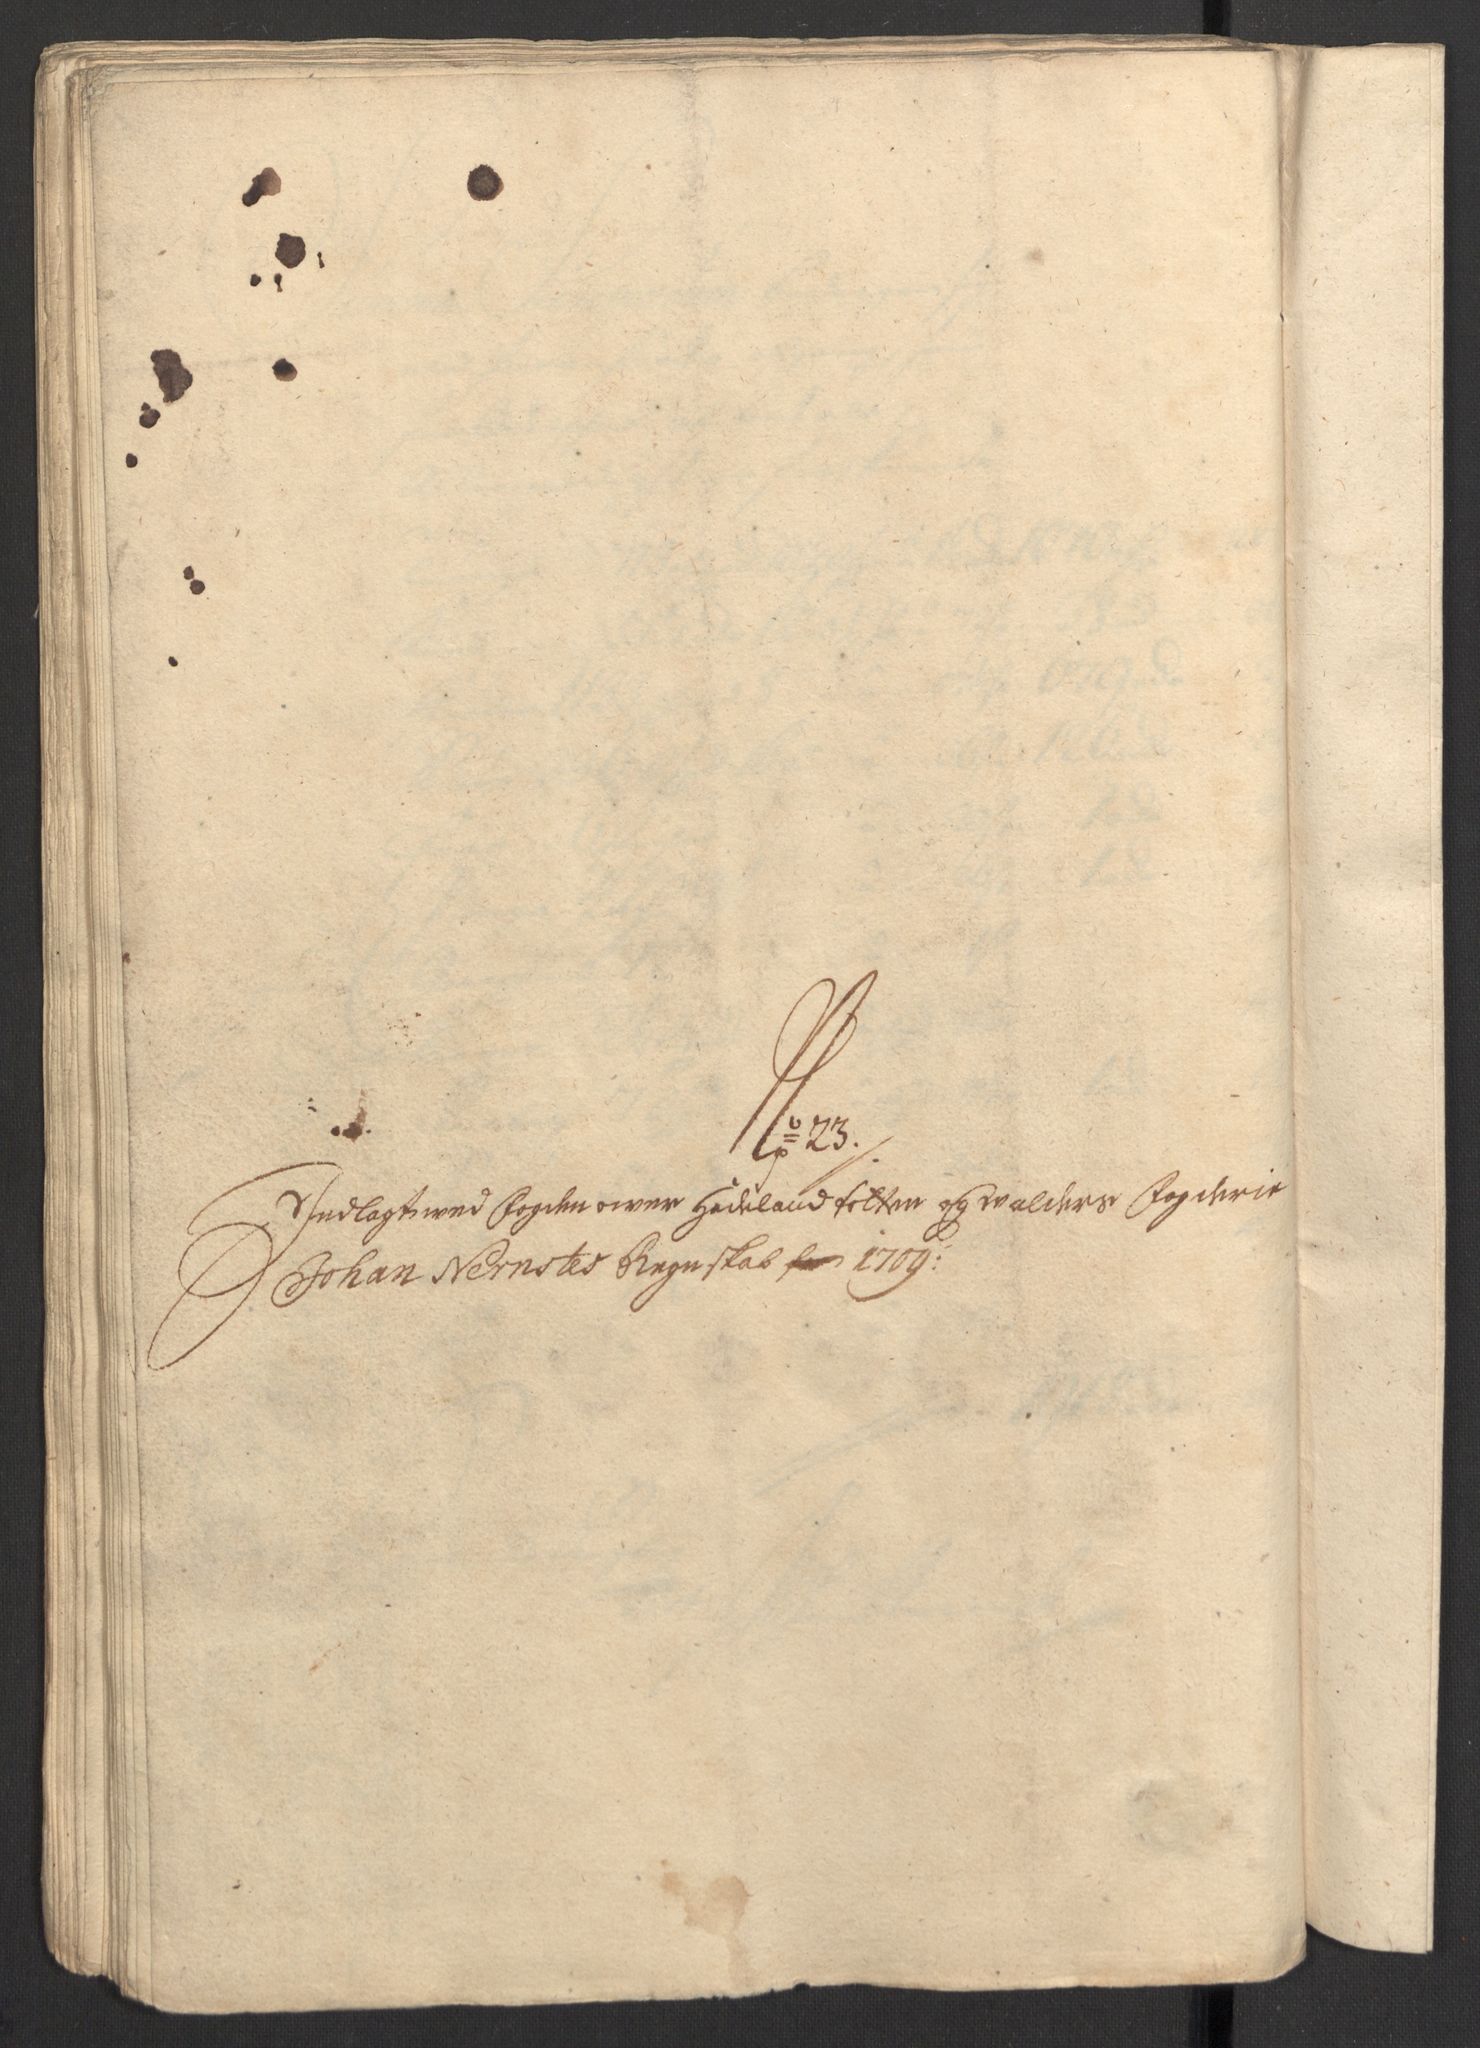 No 23.
Indlagt wed Fogden ower Hadeland toten og walders Fogderie
Johan Nernstes Regnskab for 1709: